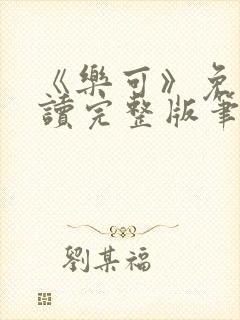 《樂可》免
讀完整版筆
劉某福